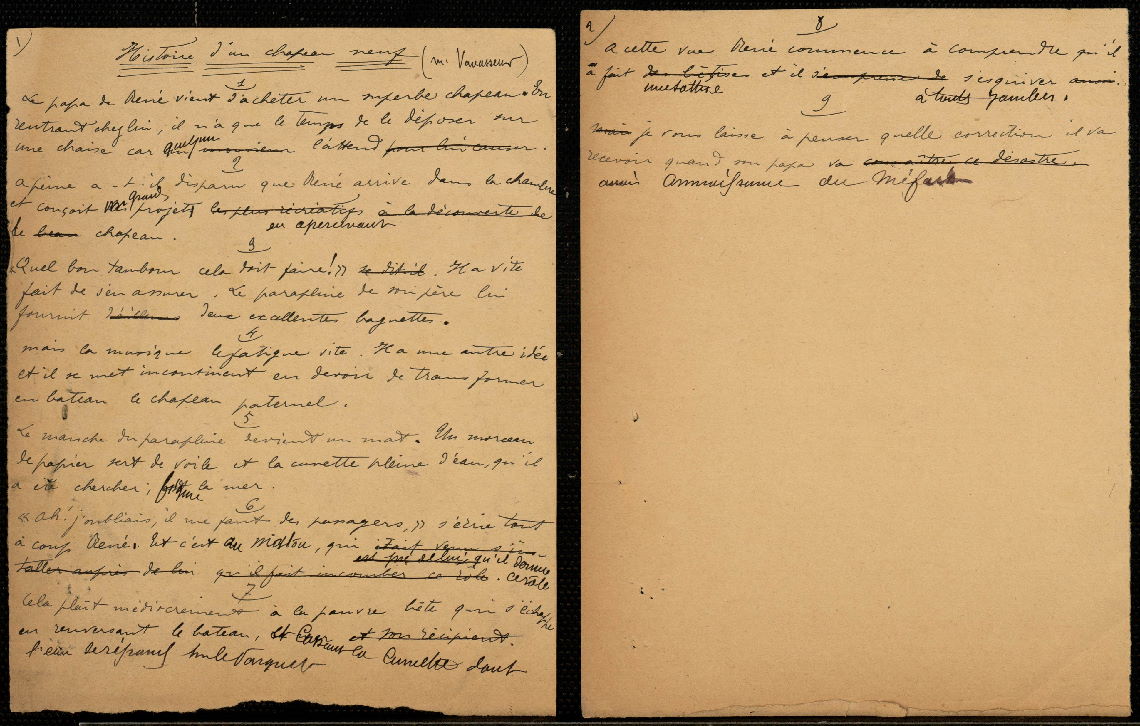 1)
Histoire d'un chapeau neuf (M. Vavasseur)
1
Le papa de René vient d'acheter un superbe chapeau. En
rentrant chez lui, il n'a que le temps de le déposer sur
quelqu'un
une chaise car monsieur l'attend pour lui causer.
2
a peine a-t-il disparu que René arrive dans la chambre
grands
et conçoit projets les plus récréatifs à la découverte de
en apercevant
le beau chapeau.
3
"Quel bon tambour cela doit faire!" se dit-il. Il a vite
fait de s'en assurer. Le parapluie de son père lui
fournit deux excellentes baguettes.
4
mais la musique le fatigue vite. Il a une autre idée
et il se met incontinent en devoir de transformer
en bateau le chapeau paternel.
5
Le manche du parapluie devient un mat. Un morceau
de papier sert de voile et la cuvette pleine d'eau, qu'il
a été chercher, figure la mer.
6
« Ah! j'oubliais, il me faut des passagers, » s'écrie tout
à coup René. Et c'est au matou, qui était venu s'ins-
qu'il donne
taller auprès de lui qu'il fait incomber ce rôle. ce rôle
7
Cela plaît médiocrement à la pauvre bête qui s'échappe
en renversant le bateau, et son récipient.
et cassant la cuvette dont
l'eau se répand sur le parquet
2)
8
a cette vue René commence à comprendre qu'il
a fait des bêtises et il s'empresse de s'esquiver
une sottise à toutes jambes.
9
je vous laisse à penser quelle correction il va
recevoir quand son papa va connaître ce désastre.